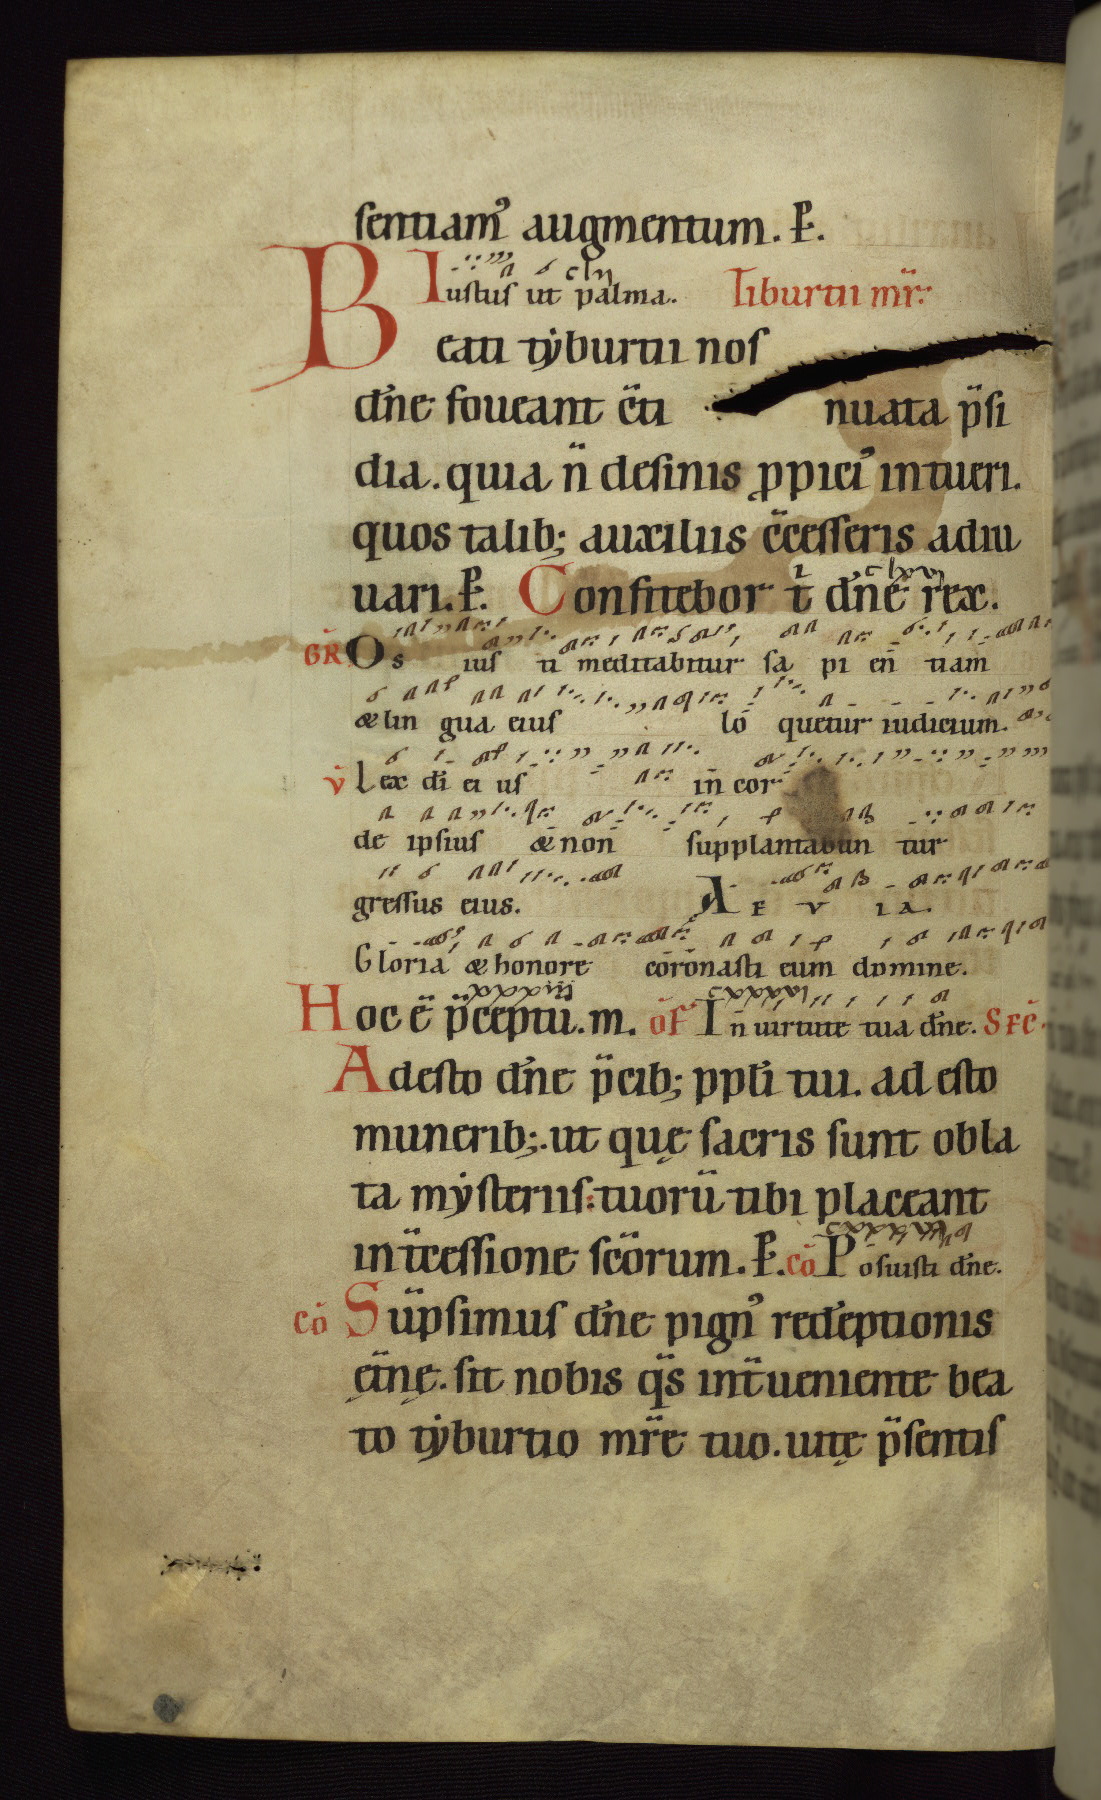 sentiam᷒ augmentum. P̵.
Iustus ut palma. Tiburtii mr̄.
Beati tẏburtii nos
dn̄e foueant c̄ti nuata p̄si
dia. quia n̄ desinis ꝓpici᷒ intueri.
quos talib; auxiliis c̄cesseris adiu
uari. P̵. Confitebor t̄ dn̄e rex.
GR̄ Os ius ti meditabitur sa pi en̄ tiam
& lin gua eius lō quetur iudicium.
v̄ Lex dī ei us in̄ cor
de ipsius & non supplantabun tur
gressus eius. A E V I A.
Gloria & honore coronasti eum domine.
Hoc ē p̄ceptū. m. of̄ In̄ uirtute tua dn̄e. SEC̄.
Adesto dn̄e p̄cib; ppłi tui. adesto
munerib;. ut quę sacris sunt obla
ta mẏsteriis: tuorū tibi placeant
int̄cessione sc̄orum. P̵. cō Posuisti dn̄e.
cō Sūpsimus dn̄e pign᷒ redēptionis
ęt̄nę. sit nobis q̄s int̄ueniente bea
to tẏburtio mr̄e tuo. uitę p̄sentis